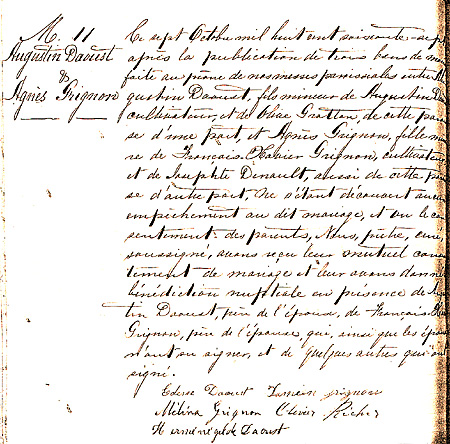 M. 11
Augustin Daoust
&
Agnès Grignon
Ce sept Octobre mil huit cent soixante-sep
après la publication de trois bans de ma
faite au prône de nos messes paroissiales entre A
gustin Daoust, fils mineur de Augustin Da
cultivateur, et de Elise Gratton, de cette paro
se d'une part, et Agnès Grignon, fille mine
re de François-Xavier Grignon, cultivateur
et de Josephte Denault, aussi de cette paro
se d'autre part, Ne s'étant découvert aucun
empêchement au dit mariage, et du le co
sentement des parents, Nous, prêtre, curé,
soussigné, avons reçu leur mutuel conse
tement de mariage et leur avons donné
bénédiction nuptiale en présence de Au
tin Daoust, père de l'époux, de François
Grignon, père de l'épouse, qui, ainsi que les épou
n'ont su signer, et de quelques autres qui on
signé.
Daoust Grignon
Mélina Grignon Olivier Richer
Herménégilde Daoust